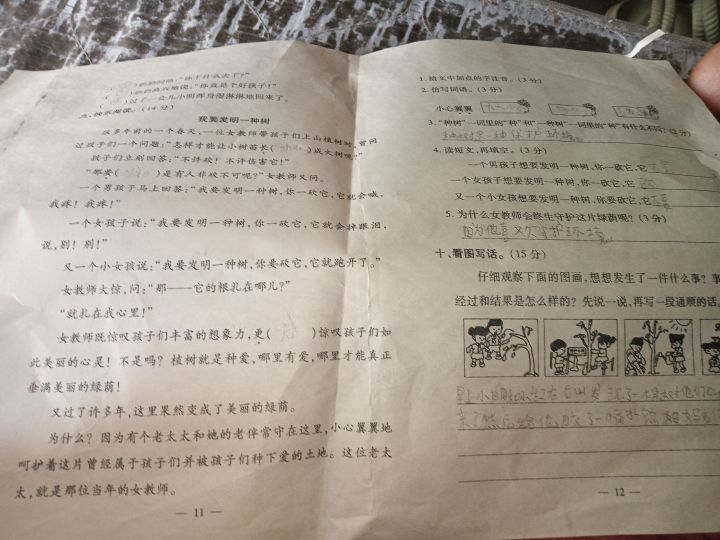 (　　)奶奶问他：“你干什么去了？”
(　　)奶奶高兴地说：“你真是个好孩子！”
(　　)过了一会儿小明浑身湿淋淋地回来了。
九、快乐阅读。(14 分)
我要发明一种树
很多年前的一个春天，一位女教师带孩子们上山植树时，曾问
过孩子们一个问题：“怎样才能让小树苗长(　　)成大树呢？”
孩子们立刻回答：“不许砍！不许伤害它！”
“那要(　　)是有人非砍不可呢？”女教师又问。
一个男孩子马上回答：“我要发明一种树，你一砍它，它就会喊，
我疼！我疼！”
一个女孩子说：“我要发明一种树，你一砍它，它就会掉眼泪，
说，别！别！”
又一个小女孩说：“我要发明一种树，你要砍它，它就跑开了。”
女教师大惊，问：“那——它的根扎在哪儿？”
“就扎在我心里！”
女教师既惊叹孩子们丰富的想象力，更(　　)惊叹孩子们如
此美丽的心灵！不是吗？植树就是种爱，哪里有爱，哪里才能真正
垂满美丽的绿荫！
又过了许多年，这里果然变成了美丽的绿荫。
为什么？因为有个老太太和她的老伴常守在这里，小心翼翼地
呵护着这片曾经属于孩子们并被孩子们种下爱的土地。这位老太
太，就是那位当年的女教师。
— 11 —
1. 给文中加点的字注音。(3 分)
2. 仿写词语。(3 分)
小心翼翼
3. “种树”一词里的“种”和“一种树”一词里的“种”有什么不同？(2分)
4. 读短文，再填空。(3 分)
一个男孩子想要发明一种树，你一砍它，它
一个女孩子想要发明一种树，你一砍它，它
又一个小女孩想要发明一种树，你要砍它，它
5. 为什么女教师会终生守护这片绿荫呢？(3 分)
因为他喜欢守护环境
十、看图写话。(15 分)
仔细观察下面的图画，想想发生了一件什么事？事
经过和结果是怎么样的？先说一说，再写一段通顺的话。
— 12 —